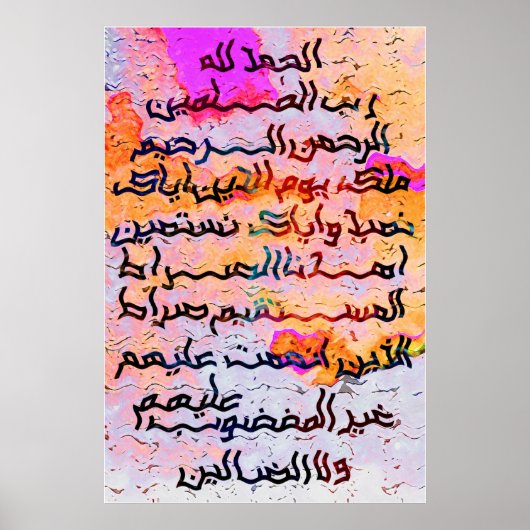 الحمد لله
رب العلمين
الرحمن الرحيم
ملك يوم الدين اياك
نعبد واياك نستعين
اهدنا الصراط
المستقيم صراط
الذين انعمت عليهم
غير المغضوب عليهم
ولا الضالين